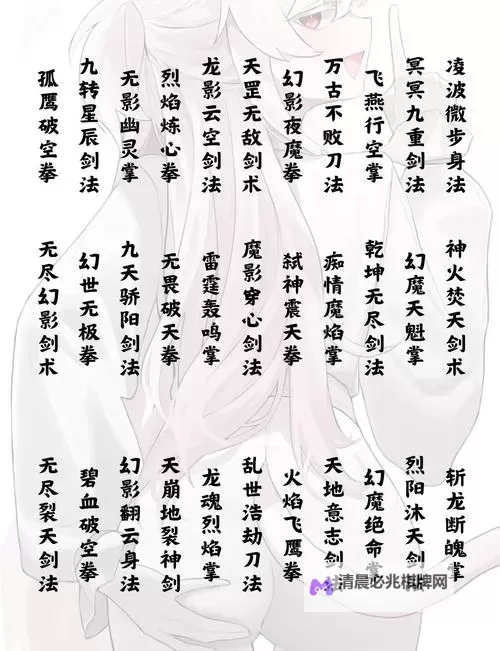 凌波微步身法
冥冥九重剑法
飞燕行空掌
万古不败刀法
幻影夜魔拳
天罡无敌剑术
龙影云空剑法
烈焰炼心拳
无影幽灵掌
九转星辰剑法
孤鹰破空拳
神火焚天剑术
幻魔天魁掌
乾坤无尽剑法
痴情魔焰掌
弑神震天拳
魔影穿心剑法
雷霆轰鸣掌
无畏破天拳
九天骄阳剑法
幻世无极拳
无尽幻影剑术
斩龙断魄掌
烈阳沐天剑
幻魔绝命掌
天地意志剑
火焰飞鹰拳
乱世浩劫刀法
龙魂烈焰掌
天崩地裂神剑
幻影翻云身法
碧血破空拳
无尽裂天剑法
清晨必兆棋牌网